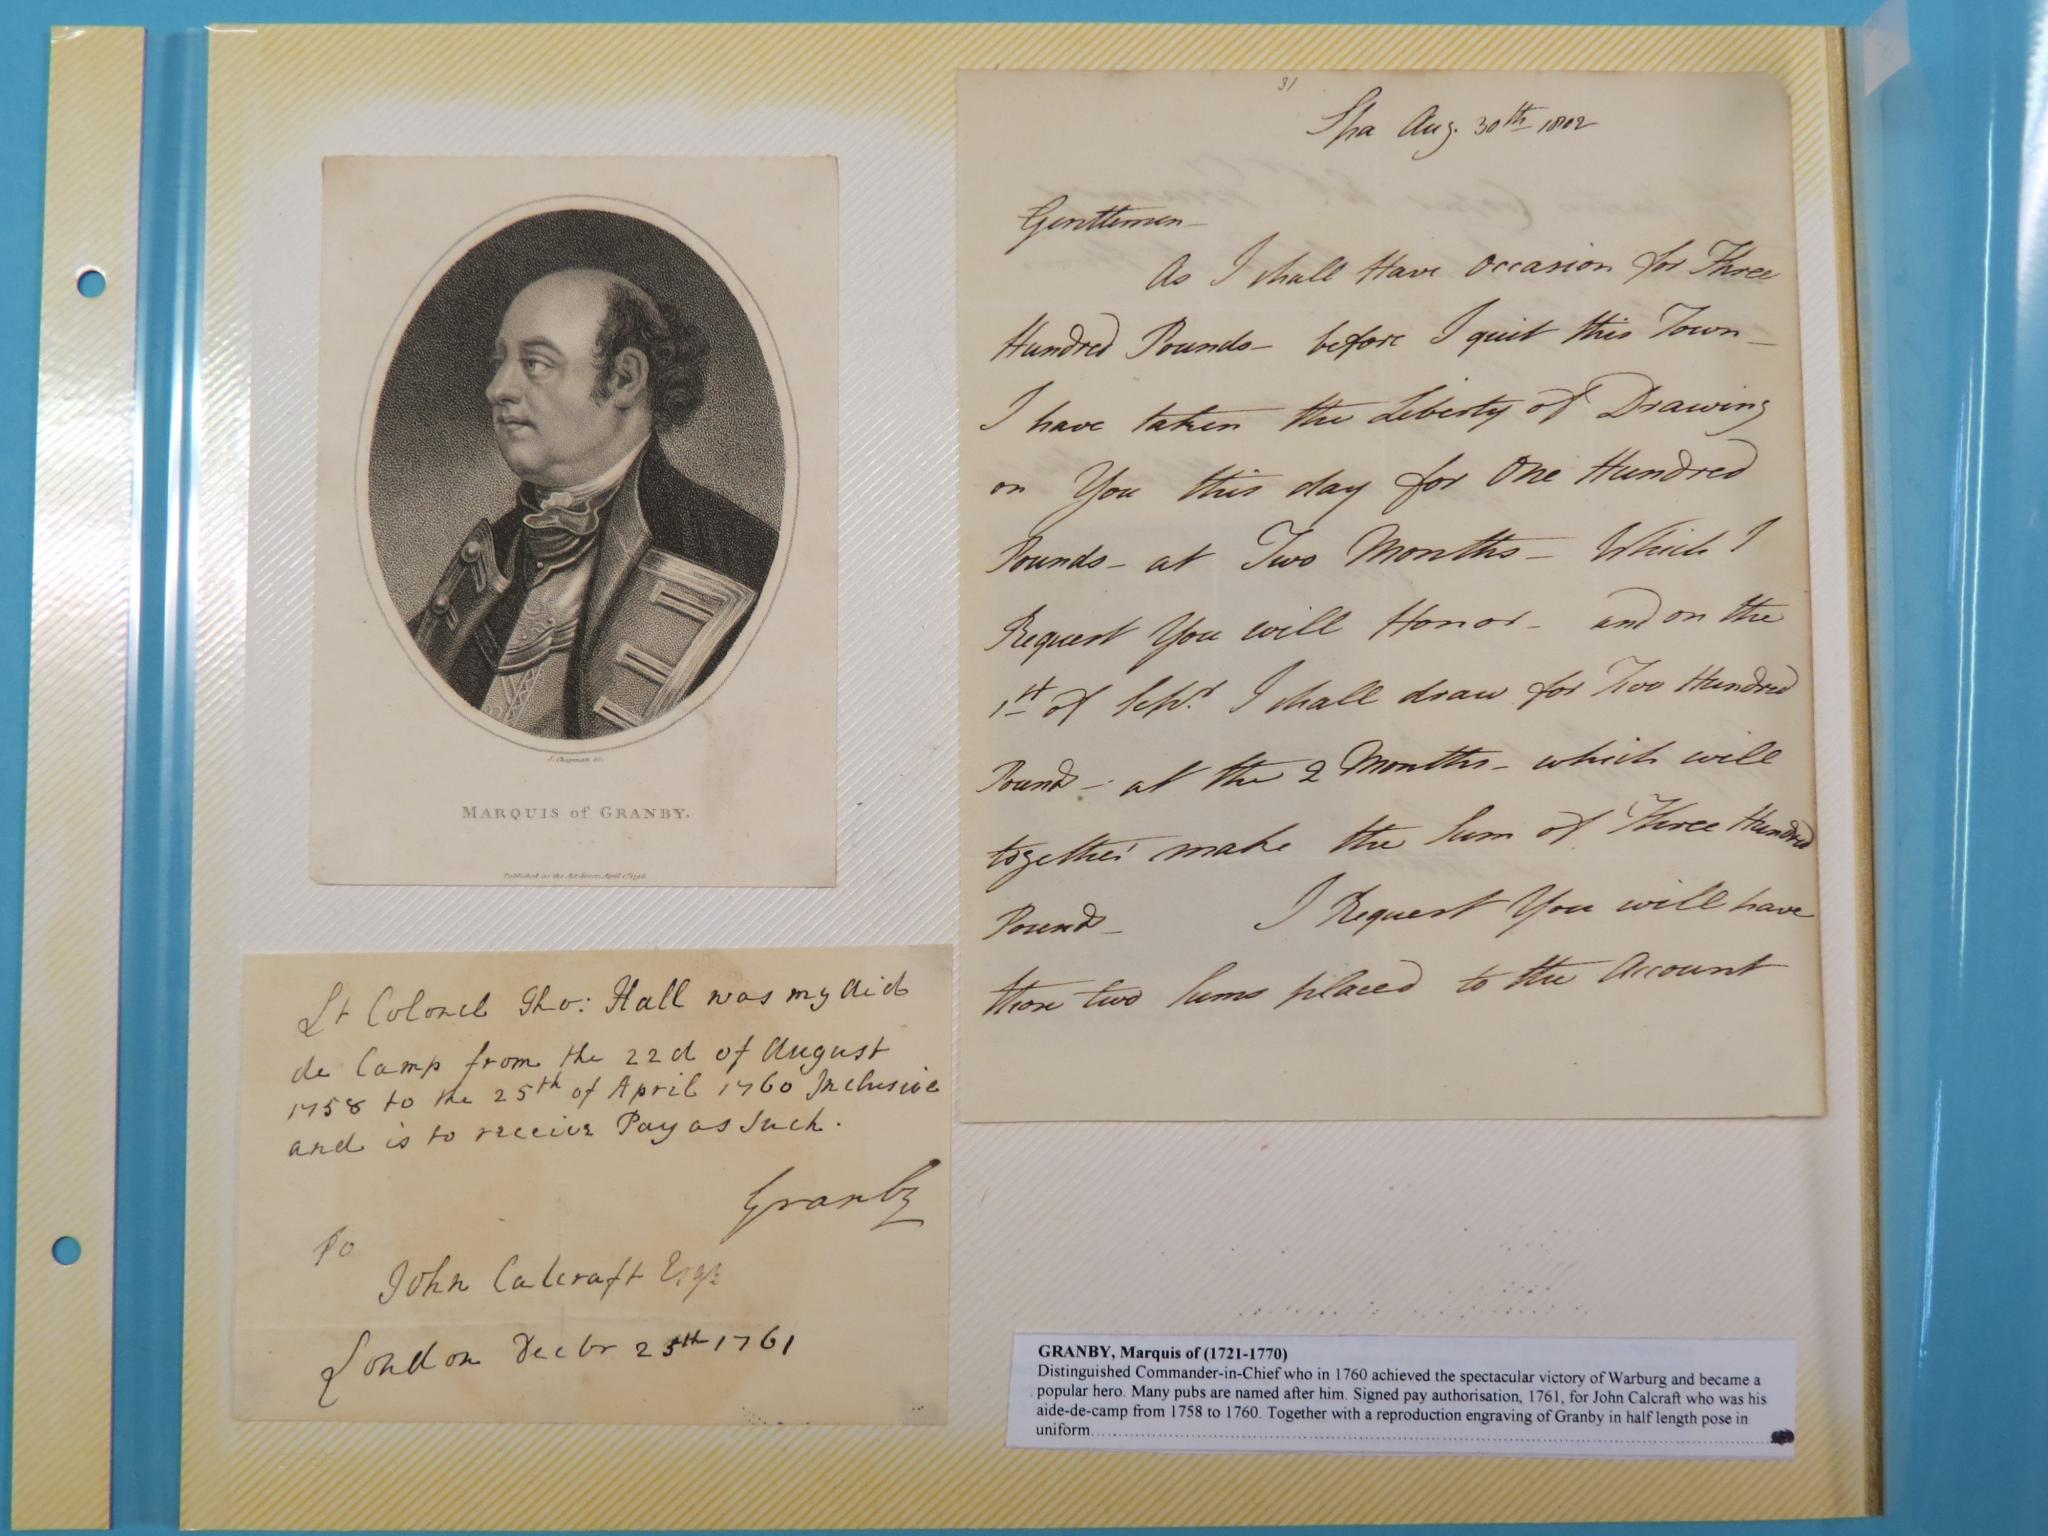 J. Chapman sc.
MARQUIS of GRANBY.
Published as the Act directs April 1st 1796.
Lt Colonel Tho: Hall was my Aid
de Camp from the 22d of August
1758 to the 25th of April 1760 Inclusive
and is to receive Pay as Such.
Granby
To
John Calcraft Esqr
London Decbr 25th 1761
31
Spa Aug. 30th 1802
Gentlemen-
As I shall Have Occasion for Three
Hundred Pounds- before I quit this Town-
I have taken the Liberty of Drawing
on You this day for One Hundred
Pounds- at Two Months- Which I
Request You will Honor- and on the
1st of Sepr I shall draw for Two Hundred
Pound- at the 2 Months- which will
together make the Sum of Three Hundred
Pound- I Request You will have
those two Sums placed to the Account
GRANBY, Marquis of (1721-1770)
Distinguished Commander-in-Chief who in 1760 achieved the spectacular victory of Warburg and became a
popular hero. Many pubs are named after him. Signed pay authorisation, 1761, for John Calcraft who was his
aide-de-camp from 1758 to 1760. Together with a reproduction engraving of Granby in half length pose in
uniform